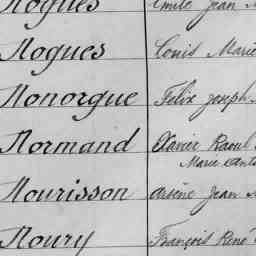 Nogues Emile Jean
Nogues Louis Marie
Nonorgue Felix Joseph
Normand Xavier Raoul
Marie
Nourisson Arsène Jean
Noury François René